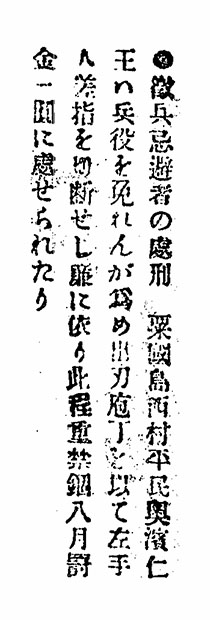 ●徴兵忌避者の處刑　粟國島西村平民與濱仁
王ハ兵役を免れんが爲め出刃庖丁を以て左手
人差指を切斷せし廉に依り此程重禁錮八月罸
金一圓に處せられたり